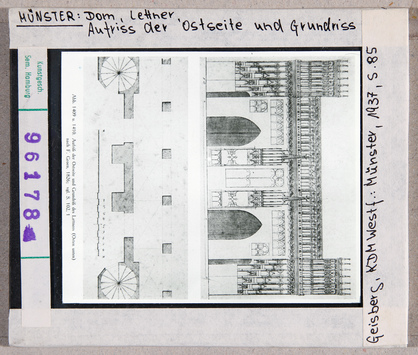 MÜNSTER: Dom, Lettner
Aufriss der Ostseite und Grundriss
Kunstgesch.
Sem. Hamburg
96178
Abb. 1409 u. 1410. Aufriß der Ostseite und Grundriß des Lettners (Osten unten)
nach F. Grum, 1826; vgl. S. 112, 1
Geisberg, KDM Westf.: Münster, 1937, S. 85